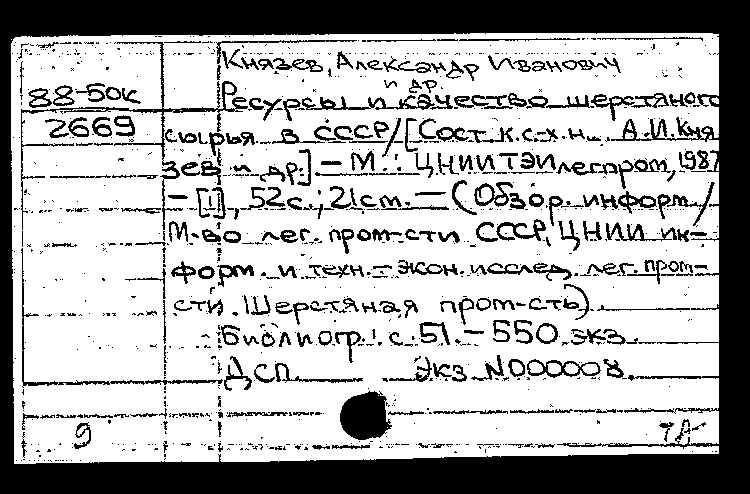 Князев, Александр Иванович
и др.
88-50к
Ресурсы и качество шерстяного
2669
сырья в СССР/[Сост. к.с-х.н. А.И.Кня
зев и др.]. - М.: ЦНИИТЭИлегпром, 1987
- [1], 52с.; 21см. - (Обзор. информ./
М-во лег. пром-сти СССР, ЦНИИ ин-
форм. и техн.-экон. исслед. лег. пром-
сти. Шерстяная пром-сть).
Библиогр.: с.51. - 550 экз.
ДСП. Экз. N000008.
9